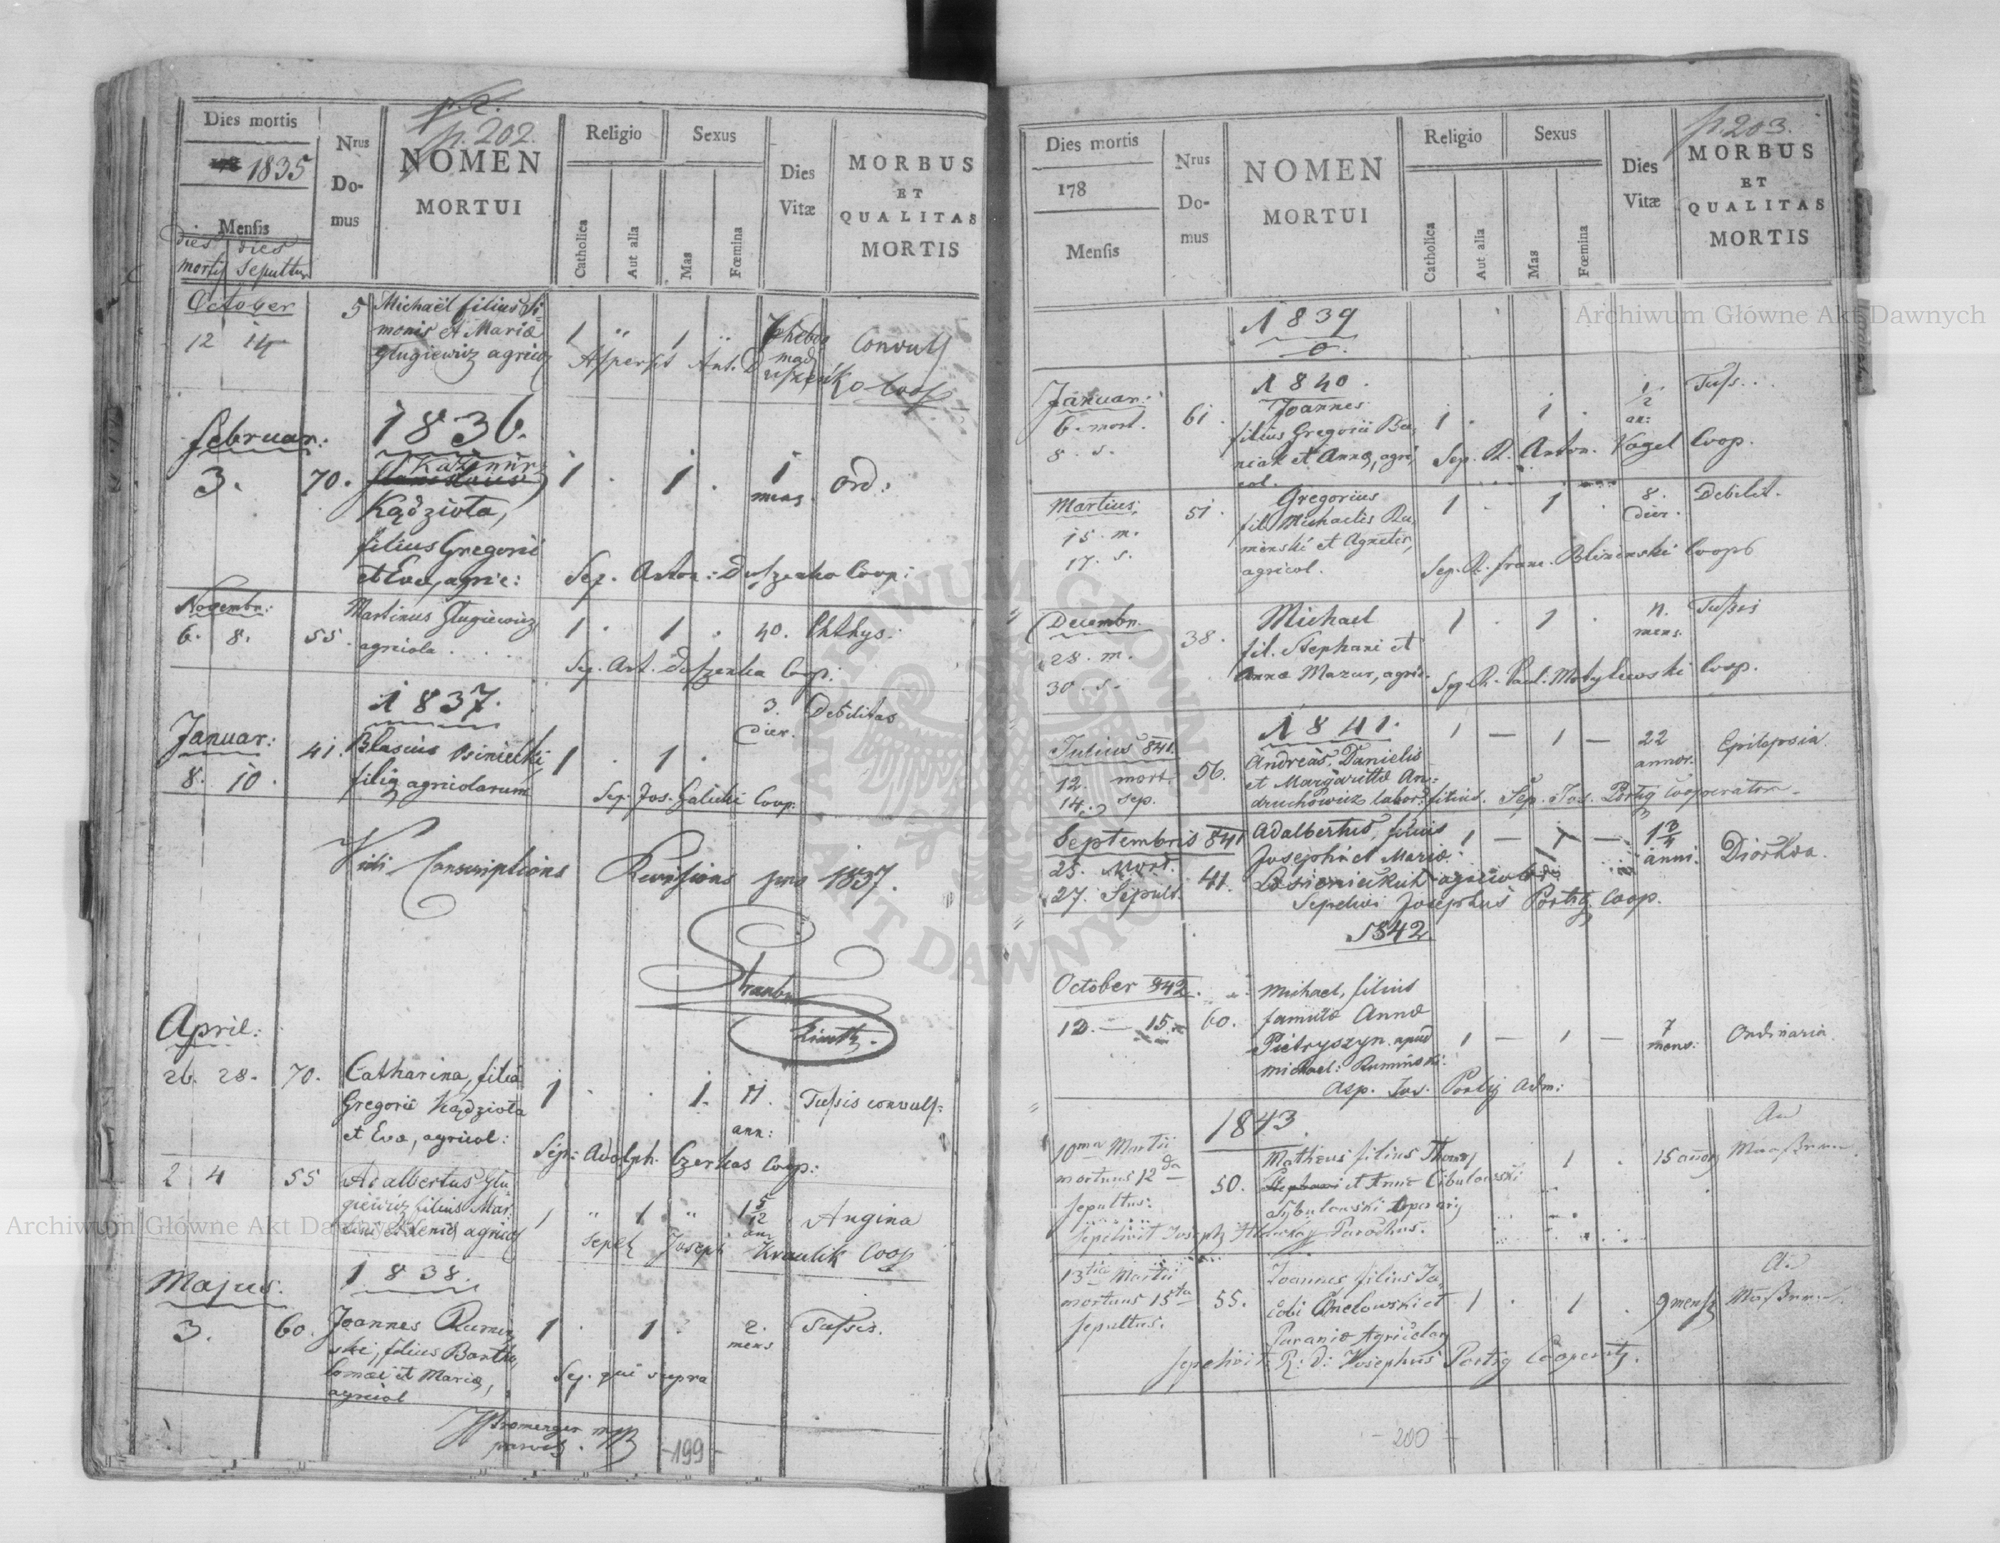 p. 202.
Dies mortis
1835
Mensis
dies mortis
dies sepultur
Nrus Domus
NOMEN
MORTUI
Religio
Catholica
Aut alia
Sexus
Mas
Fœmina
Dies Vitæ
MORBUS
ET
QUALITAS
MORTIS
October
12 14
5
Michaël filius Si-
monis et Mariæ
Glugiewicz agricol
1 " 1 "
7 hebdo
mad
Convuls
Aspersit Ant. Duszenko Coop
1836.
Februar:
3.
70.
Kazimir
Kądziola,
filius Gregorii
et Eva, agric:
1 . 1 .
1
mens.
Ord:
Sep. Anton: Duszenko Coop:
Novembr:
6. 8.
55.
Martinus Glugiewicz
agricola
1 . 1 .
40.
Phthys:
Sep. Ant. Duszenko Coop:
1837.
Januar:
8. 10.
41.
Blasius
filius agricolarum
1 . 1 .
3.
dier.
Debilitas
Sep. Jos. Galicki Coop:
Vidi Conscriptions Revisions pro 1837.
April:
26. 28.
70.
Catharina, filia
Gregorii Kądziola
et Eva, agricol:
1 . . 1.
11.
ann:
Tussis convuls:
Sep: Adolph. Czerkas Coop:
2 4
55
Adalbertus Glu-
giewicz filius Mar-
tini et agricol
1 " 1 "
1 5/12
an
Angina
Sepel Joseph Kraulik Coop
1838.
Majus.
3.
60.
Joannes Rumin
ski, filius Bartho
lomæi et Mariæ,
agricol
1 . 1 .
2.
mens
Tussis.
Sep. qui supra
-199-
p. 203.
Dies mortis
178
Mensis
Nrus Domus
NOMEN
MORTUI
Religio
Catholica
Aut alia
Sexus
Mas
Fœmina
Dies Vitæ
MORBUS
ET
QUALITAS
MORTIS
1839
0.
1840.
Januar:
6. mort.
8. s.
61.
Joannes
filius Gregorii Ba-
niak et Anna, agri
col.
1 . 1 .
1/2
an:
Tuss...
Sep. R. Anton. Vogel Coop.
Martius,
15. m.
17. s.
51.
Gregorius
fil. Michaelis Ru-
minski et Agnetis,
agricol.
1 . 1 .
8.
dier.
Debilit.
Sep. R. Franc. Blizenski Coop
Decembr.
28. m.
30. s.
38.
Michael
fil. Stephani et
Anna Mazur, agric.
1 . 1 .
11.
mens.
Tussis
Sep. R. Paul. Motylewski Coop.
1841.
Julius 841.
12. mort.
14. sep.
56.
Andreas, Danielis
et Margarittæ An-
druchowicz labor: filius.
1 — 1 —
22
annor.
Epilepsia.
Sep. Jos. Portig Cooperator.
Septembris 841
25. Mort.
27. Sepult.
41.
Adalbertus, filius
Josephi et Mariæ
1 — 1 —
1 3/4
anni.
Diorhva.
Sepelivi Josephus Portig Coop.
1842
October 842.
12. — 15.
60.
Michael, filius
famulæ Annæ
Pietryszyn apud
Michael: Rumiński:
1 — 1 —
7
mens:
Ordinaria
Asp. Jos. Portig Adm:
1843.
10ma Martii
mortuus 12da
sepultus:
50.
Matheus filius Thomæ
et Annæ Cibulowski
Cybulowski
1 .
15
Sepelivit Joseph Parochus.
13tia Martii
mortuus 15ta
sepultus.
55.
Joannes filius Ja-
cobi et
Paraniæ Agricolar
1 . 1 .
9 mens
Sepelivit R: D: Josephus Portig Cooperat.
- 200 -
Archiwum Główne Akt Dawnych
Archiwum Główne Akt Dawnych
ARCHIWUM GŁÓWNE AKT DAWNYCH